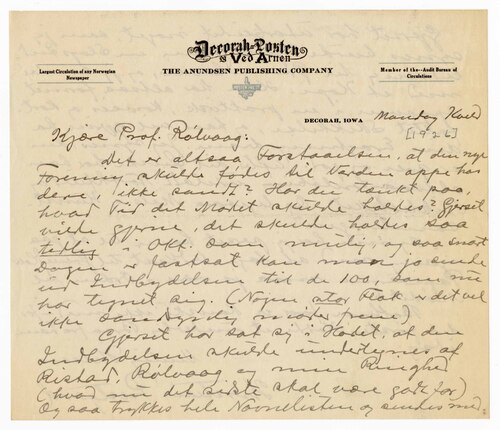 Decorah-Posten
og Ved Arnen
Largest Circulation of any Norwegian
Newspaper
THE ANUNDSEN PUBLISHING COMPANY
Member of the Audit Bureau of
Circulations
DECORAH, IOWA
Mandag Kveld
[1926]
Kjære Prof. Rølvaag:
Det er altsaa Forstaaelsen, at den nye
Forening skulde fødes til Verden oppe hos
dere, ikke sandt? Har du tænkt paa,
hvad Tid det Mødet skulde holdes? Gjerset
vilde gjerne, det skulde holdes saa
tidlig i Okt. som mulig, og saa snart
Dagen er fastsat kan man jo sende
ud Indbydelsen til de 100, som nu
har tegnet sig. (Nogen stor Flok er det vel
ikke)
Gjerset har sat sig i Hodet, at den
Indbydelsen skulde undertegnes af
Ristad, Rølvaag og min Ringhed
(hvad nu det sidste skal være godt for)
Og saa trykkes hele Navnelisten og sendes med